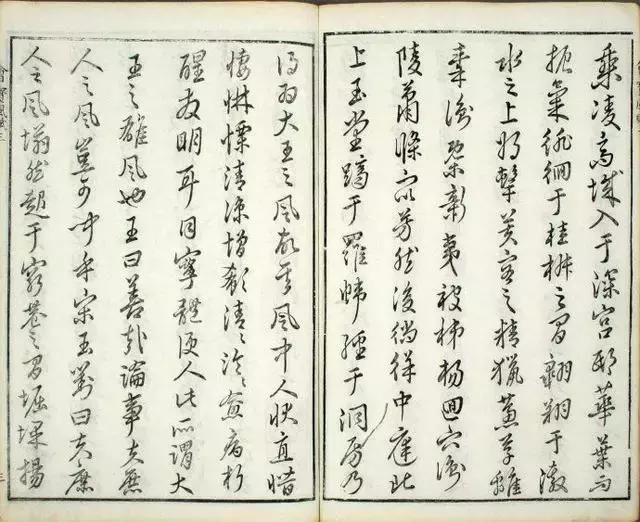 乘凌高城入于深宮邸華葉而
振氣徘徊于桂椒之間翱翔于激
水之上將擊芙容之精獵蕙草離
秦衡概新夷被稊楊迴穴衝
陵蕭條眾芳然後徜徉中庭北
上玉堂躋于羅帷經于洞房乃
得為大王之風故其風中人狀直憯
悽惏慄清涼增欷清清泠泠愈病析
酲發明耳目寧體便人此所謂大
王之雄風也王曰善哉論事夫庶
人之風豈可聞乎宋玉對曰夫庶
人之風塕然起于窮巷之間堀堁揚